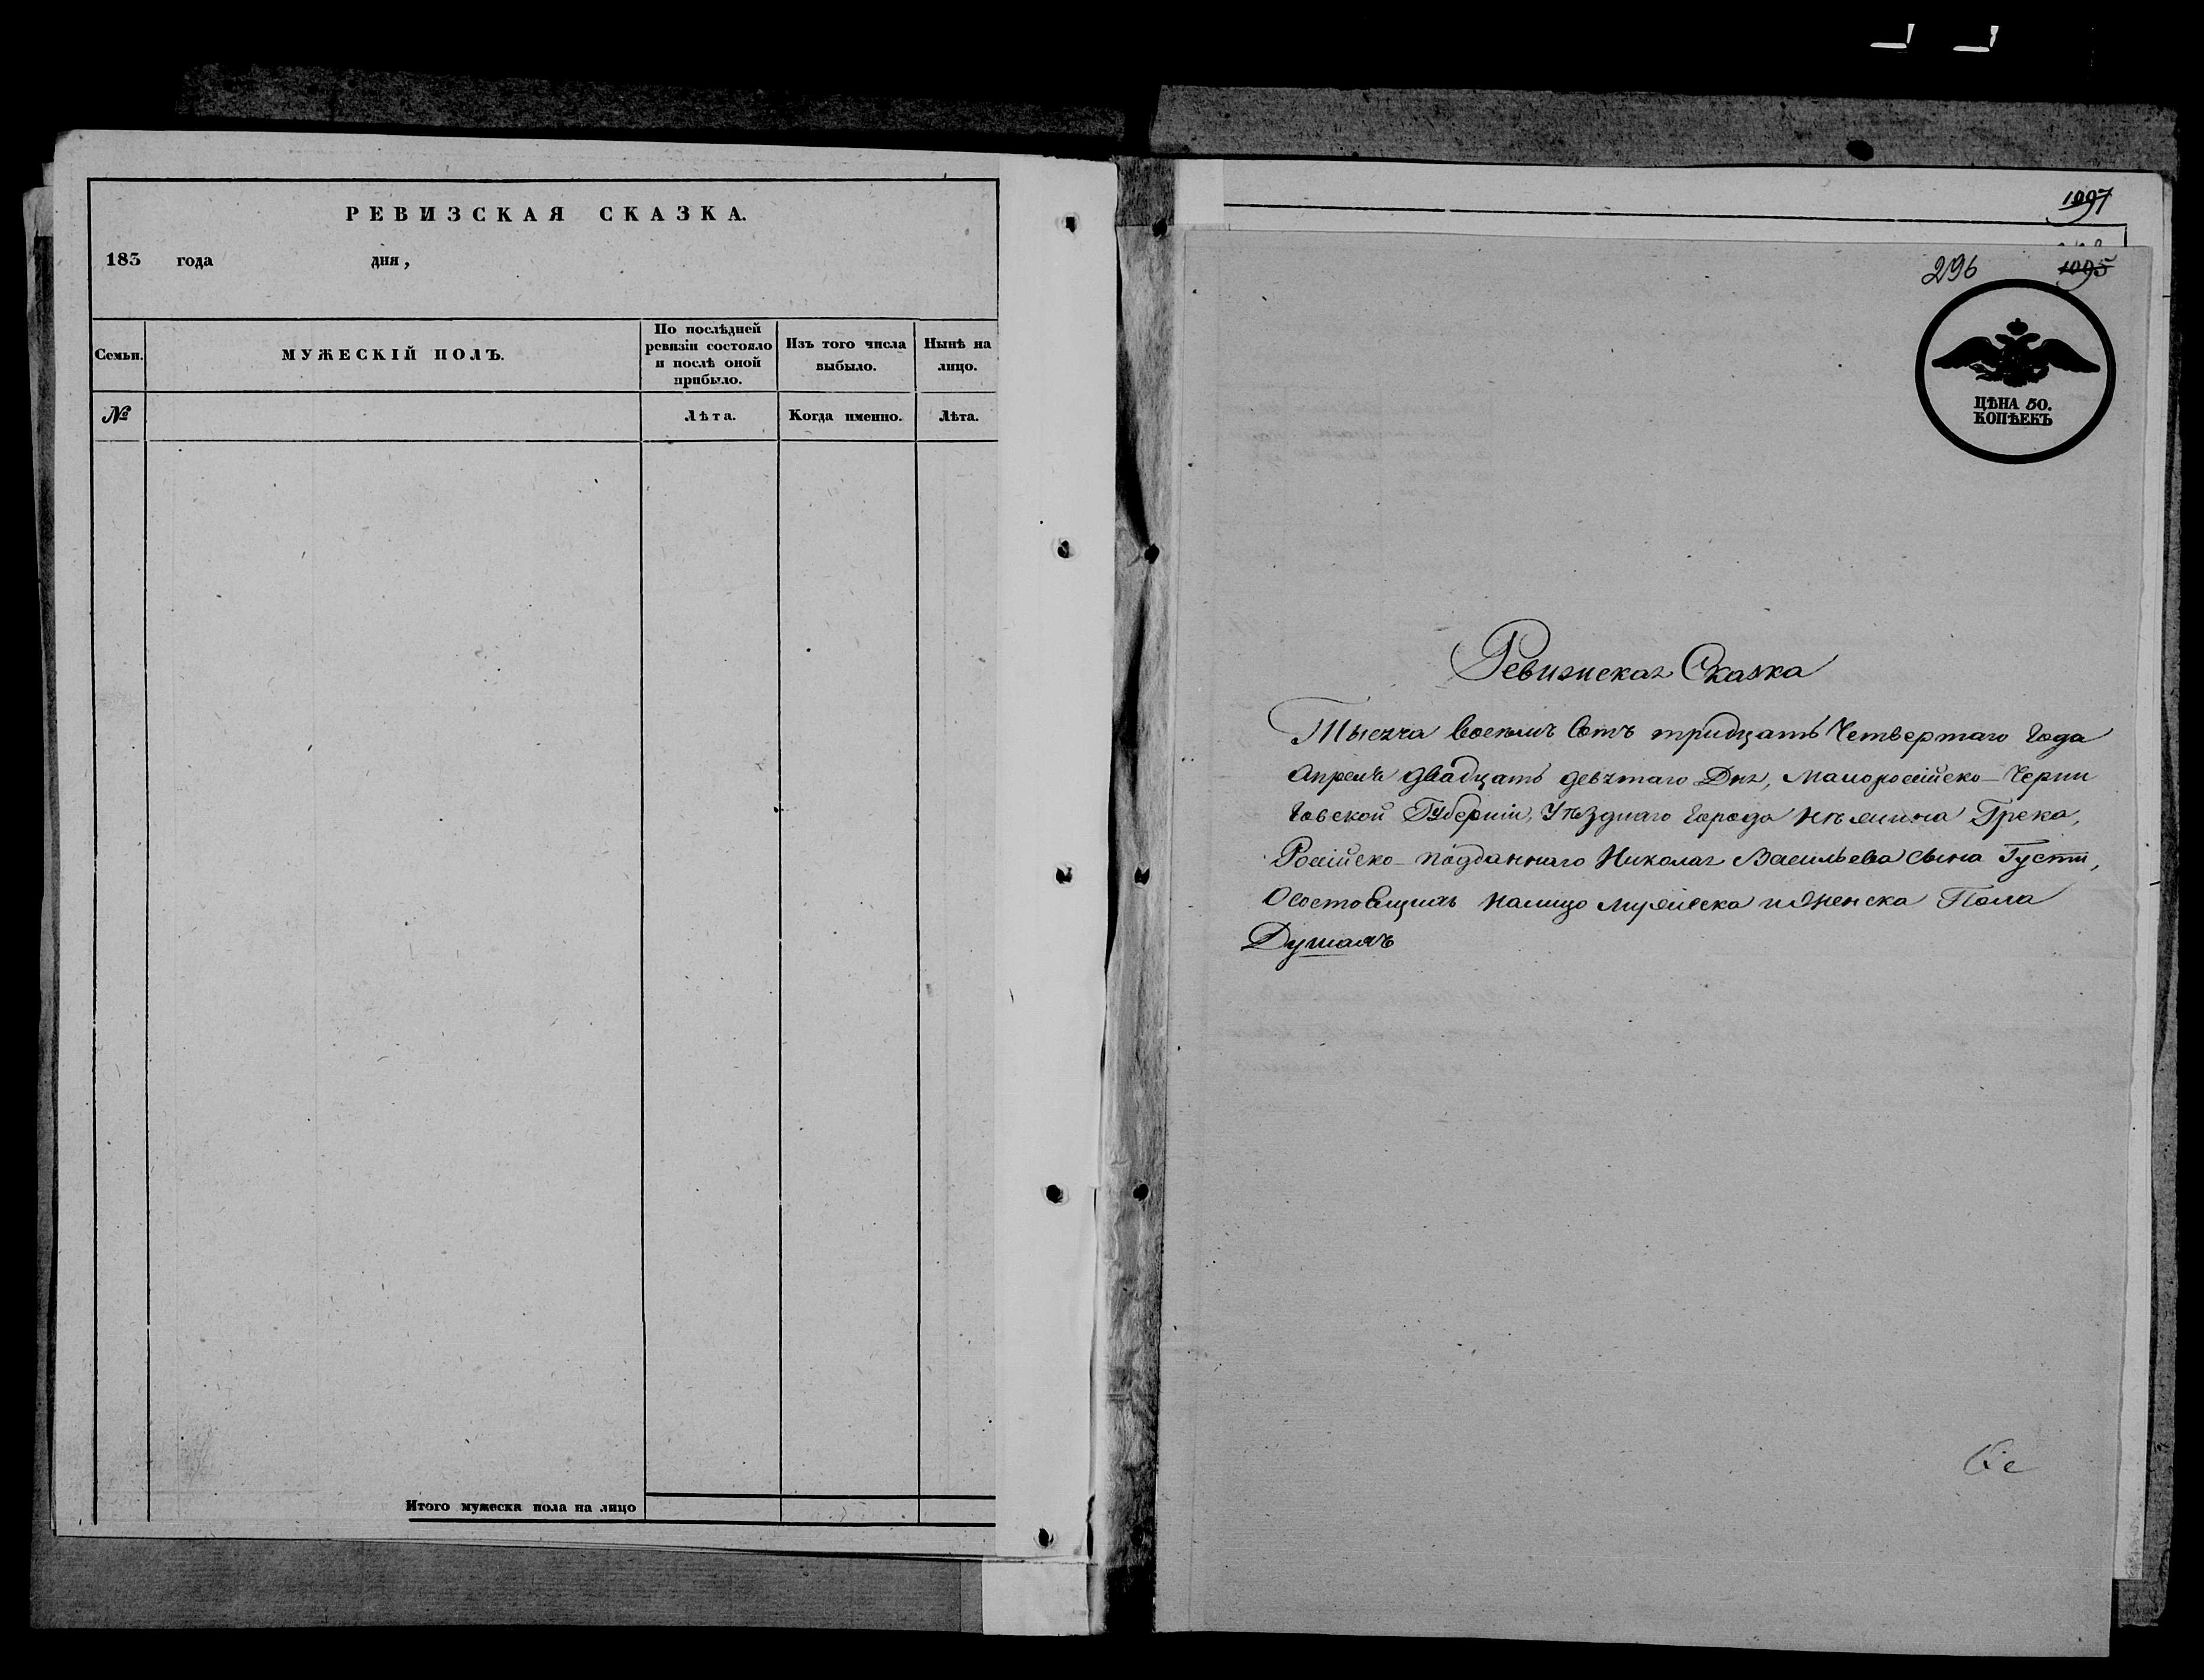 РЕВИЗСКАЯ СКАЗКА.
183 года дня,
Семьи.
МУЖЕСКІЙ ПОЛЪ.
По послѣдней
ревизіи состояло
и послѣ оной
прибыло.
Изъ того числа
выбыло.
Нынѣ на
лицо.
№
Лѣта.
Когда именно.
Лѣта.
Итого мужеска пола на лицо
1097
296
1095
ЦѢНА 50.
КОПѢЕКЪ
Ревизиская Сказка
Тысяча восемъ сотъ тридцать Четвертаго Года
Апреля двадцать девятаго Дня, Малоросійско-Черни
говской Губерніи, Уѣзднаго города Нѣжина Грека,
Російско-подданнаго Николая Васильева сына Густи,
О состоящихъ налицо мужеска и женска Пола
Душахъ